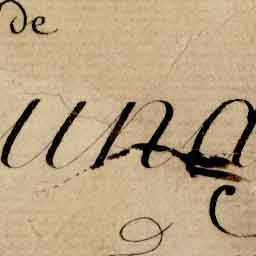 de
una